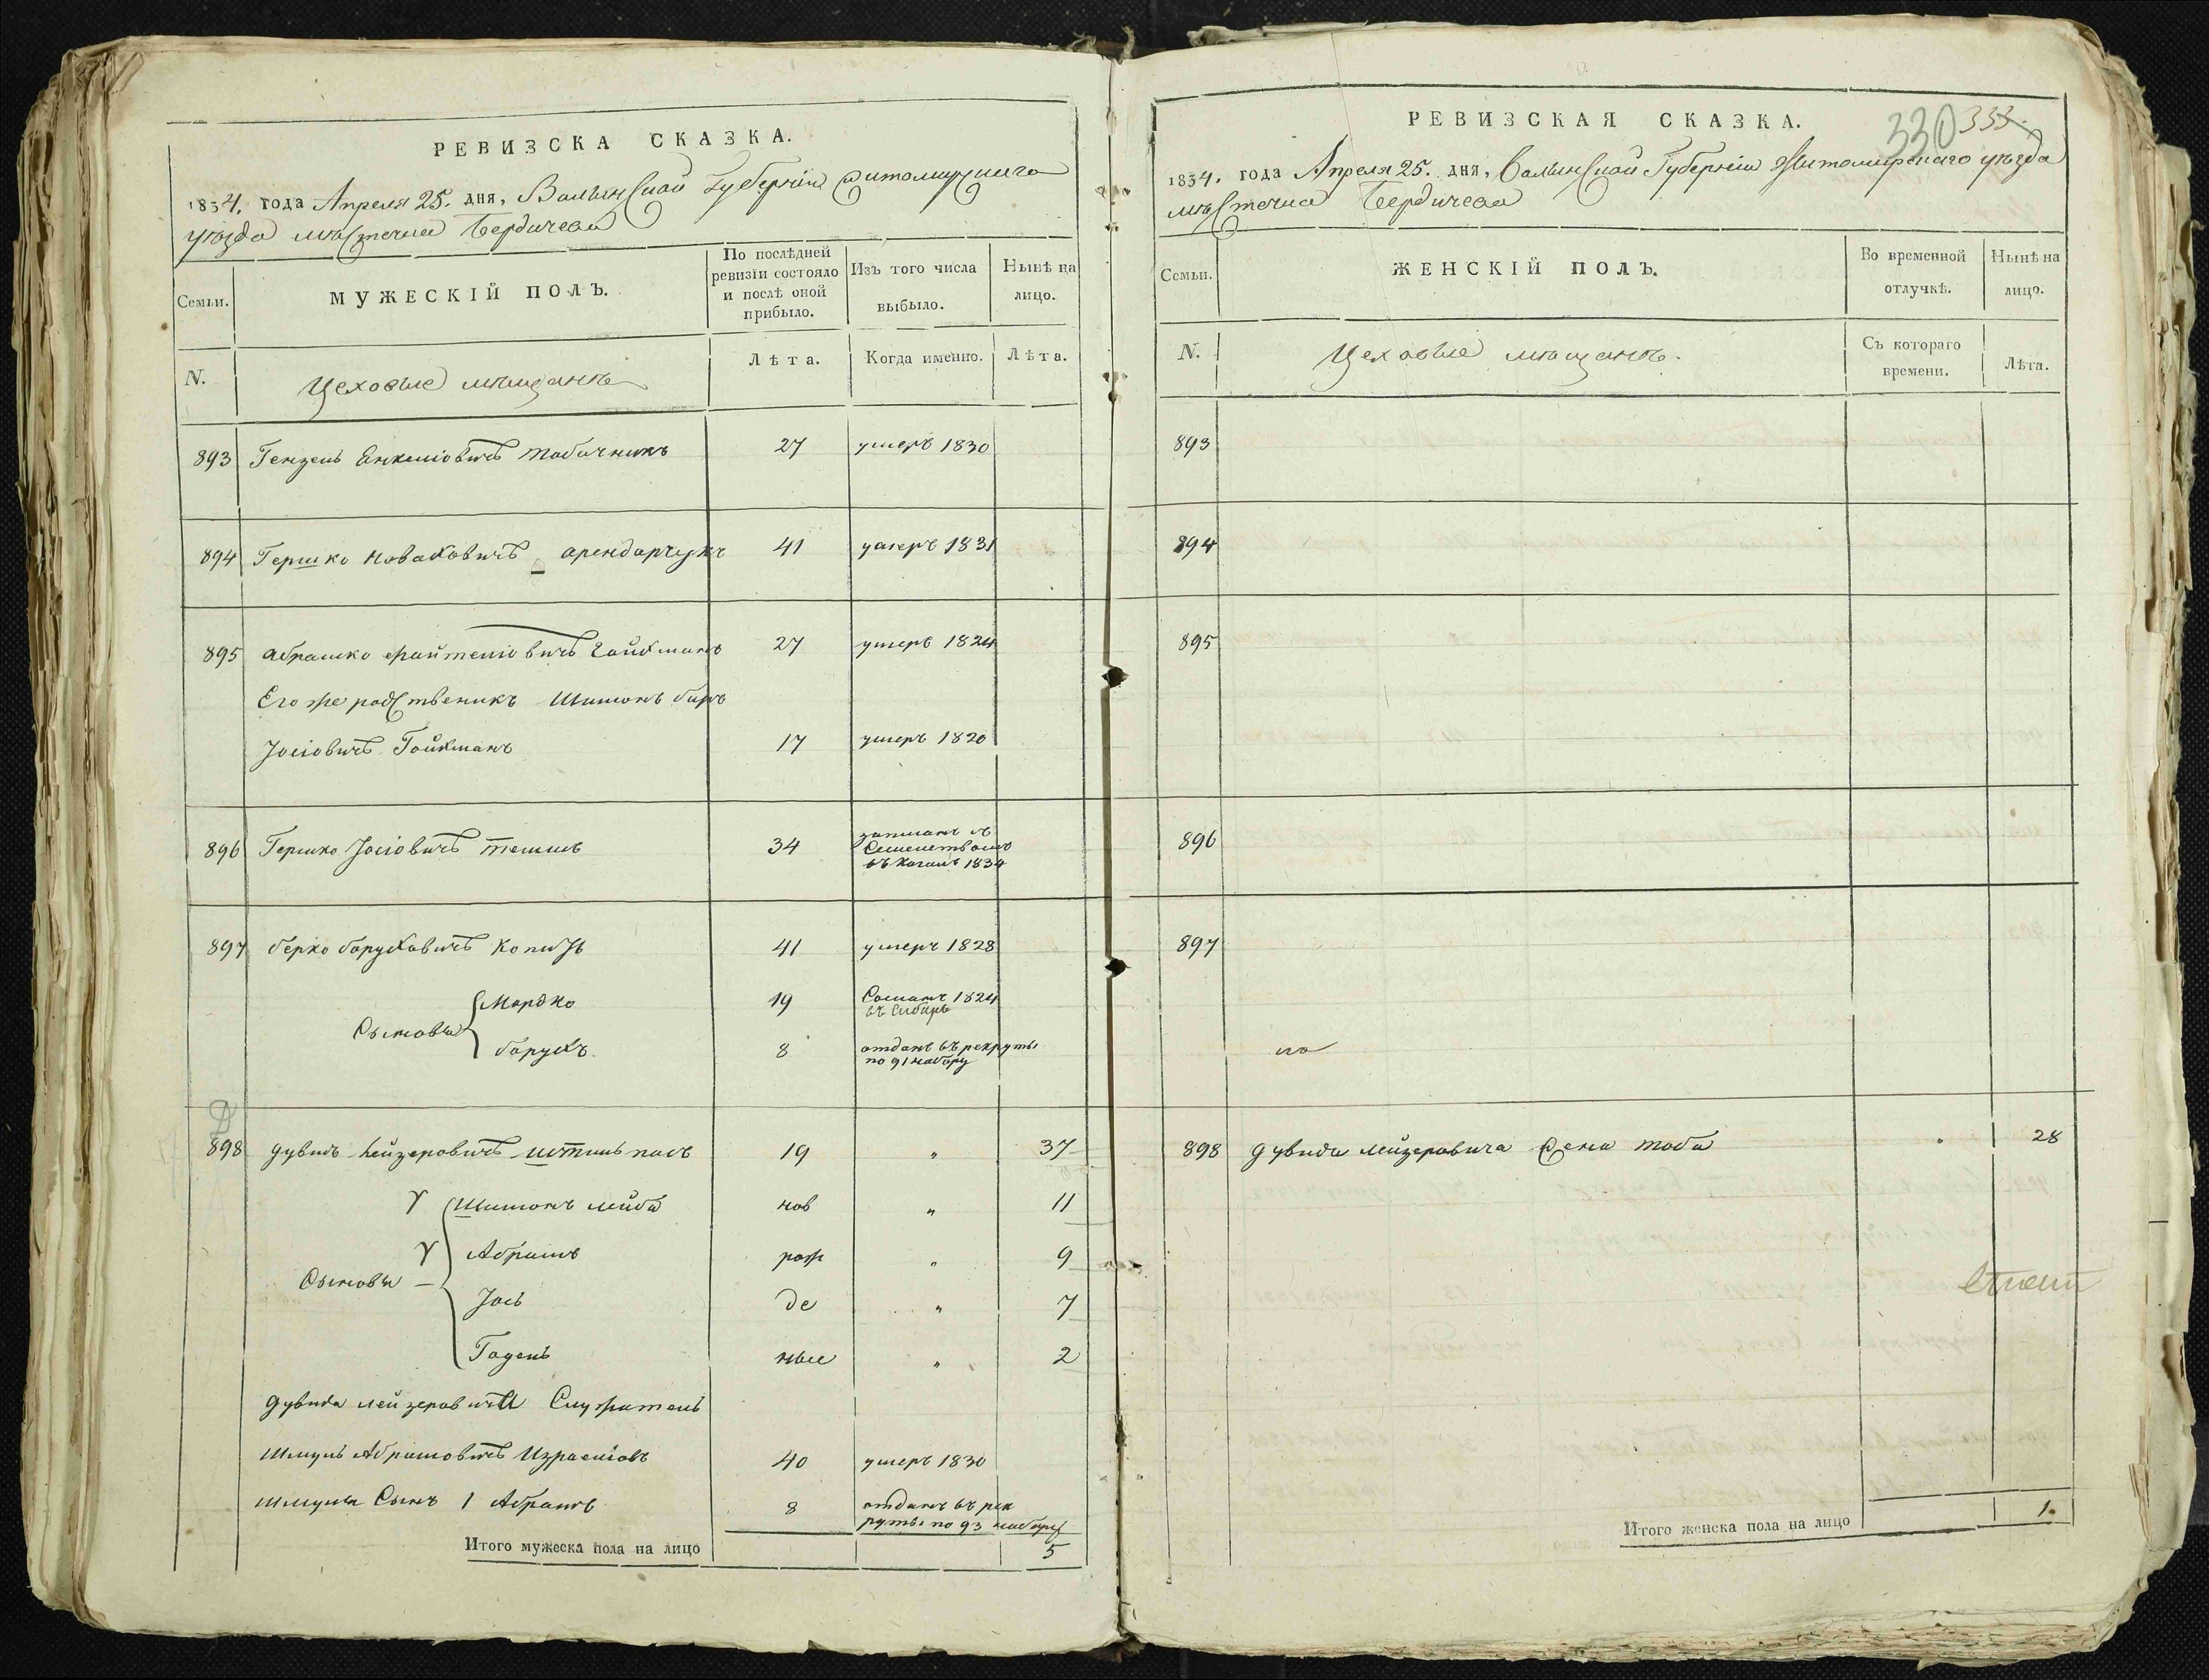 РЕВИЗСКА СКАЗКА.
1834. года Апреля 25. дня, Волынской Губернiи Житомирскаго
уѣзда мѣстечка Бердичева
Семьи.
МУЖЕСКIЙ ПОЛЪ.
По послѣдней
ревизiи состояло
и послѣ оной
прибыло.
Изъ того числа
выбыло.
Нынѣ на
лицо.
N.
Цеховые мѣщанъ
Лѣта.
Когда именно.
Лѣта.
893 Гензель Янкелiовичъ Табачникъ 27 умеръ 1830
894 Гершко Новаховичъ арендарчукъ 41 умеръ 1831
895 Абрамко Файтелiовичъ Гойхманъ 27 умеръ 1824
Его же родственикъ Шимонъ Беръ
Iосiовичъ Гойхманъ 17 умеръ 1820
896 Гершко Iосiовичъ 34 записанъ съ
Семействомъ
въ Кагалъ 1834
897 Берко Боруховичъ 41 умеръ 1828
Сыновья
Мордко 19 Сосланъ 1824
въ Сибирь
Борухъ. 8 отданъ въ рекруты
по 91 набору
898 Дувидъ Лейзеровичъ 19 „ 37
Сыновья
Шимонъ Лейба нов „ 11
Абрамъ рож „ 9
Iось де „ 7
Гадель ные „ 2
Дувида Лейзеровича Служитель
Шмуль Абрамовичъ Израелiовъ 40 умеръ 1830
Шмуля Сынъ 1 Абрамъ 8 отданъ въ рек
руты по 93 набору
Итого мужеска пола на лицо 5
РЕВИЗСКАЯ СКАЗКА.
330 333
1834. года Апреля 25. дня, Волынской Губернiи Житомирскаго уѣзда
мѣстечка Бердичева
Семьи.
ЖЕНСКIЙ ПОЛЪ.
Во временной
отлучкѣ.
Нынѣ на
лицо.
N.
Цеховые мѣщанъ.
Съ котораго
времени.
Лѣта.
893
894
895
896
897
898 Дувида Лейзеровича Жена Тоба „ 28
Итого женска пола на лицо 1.